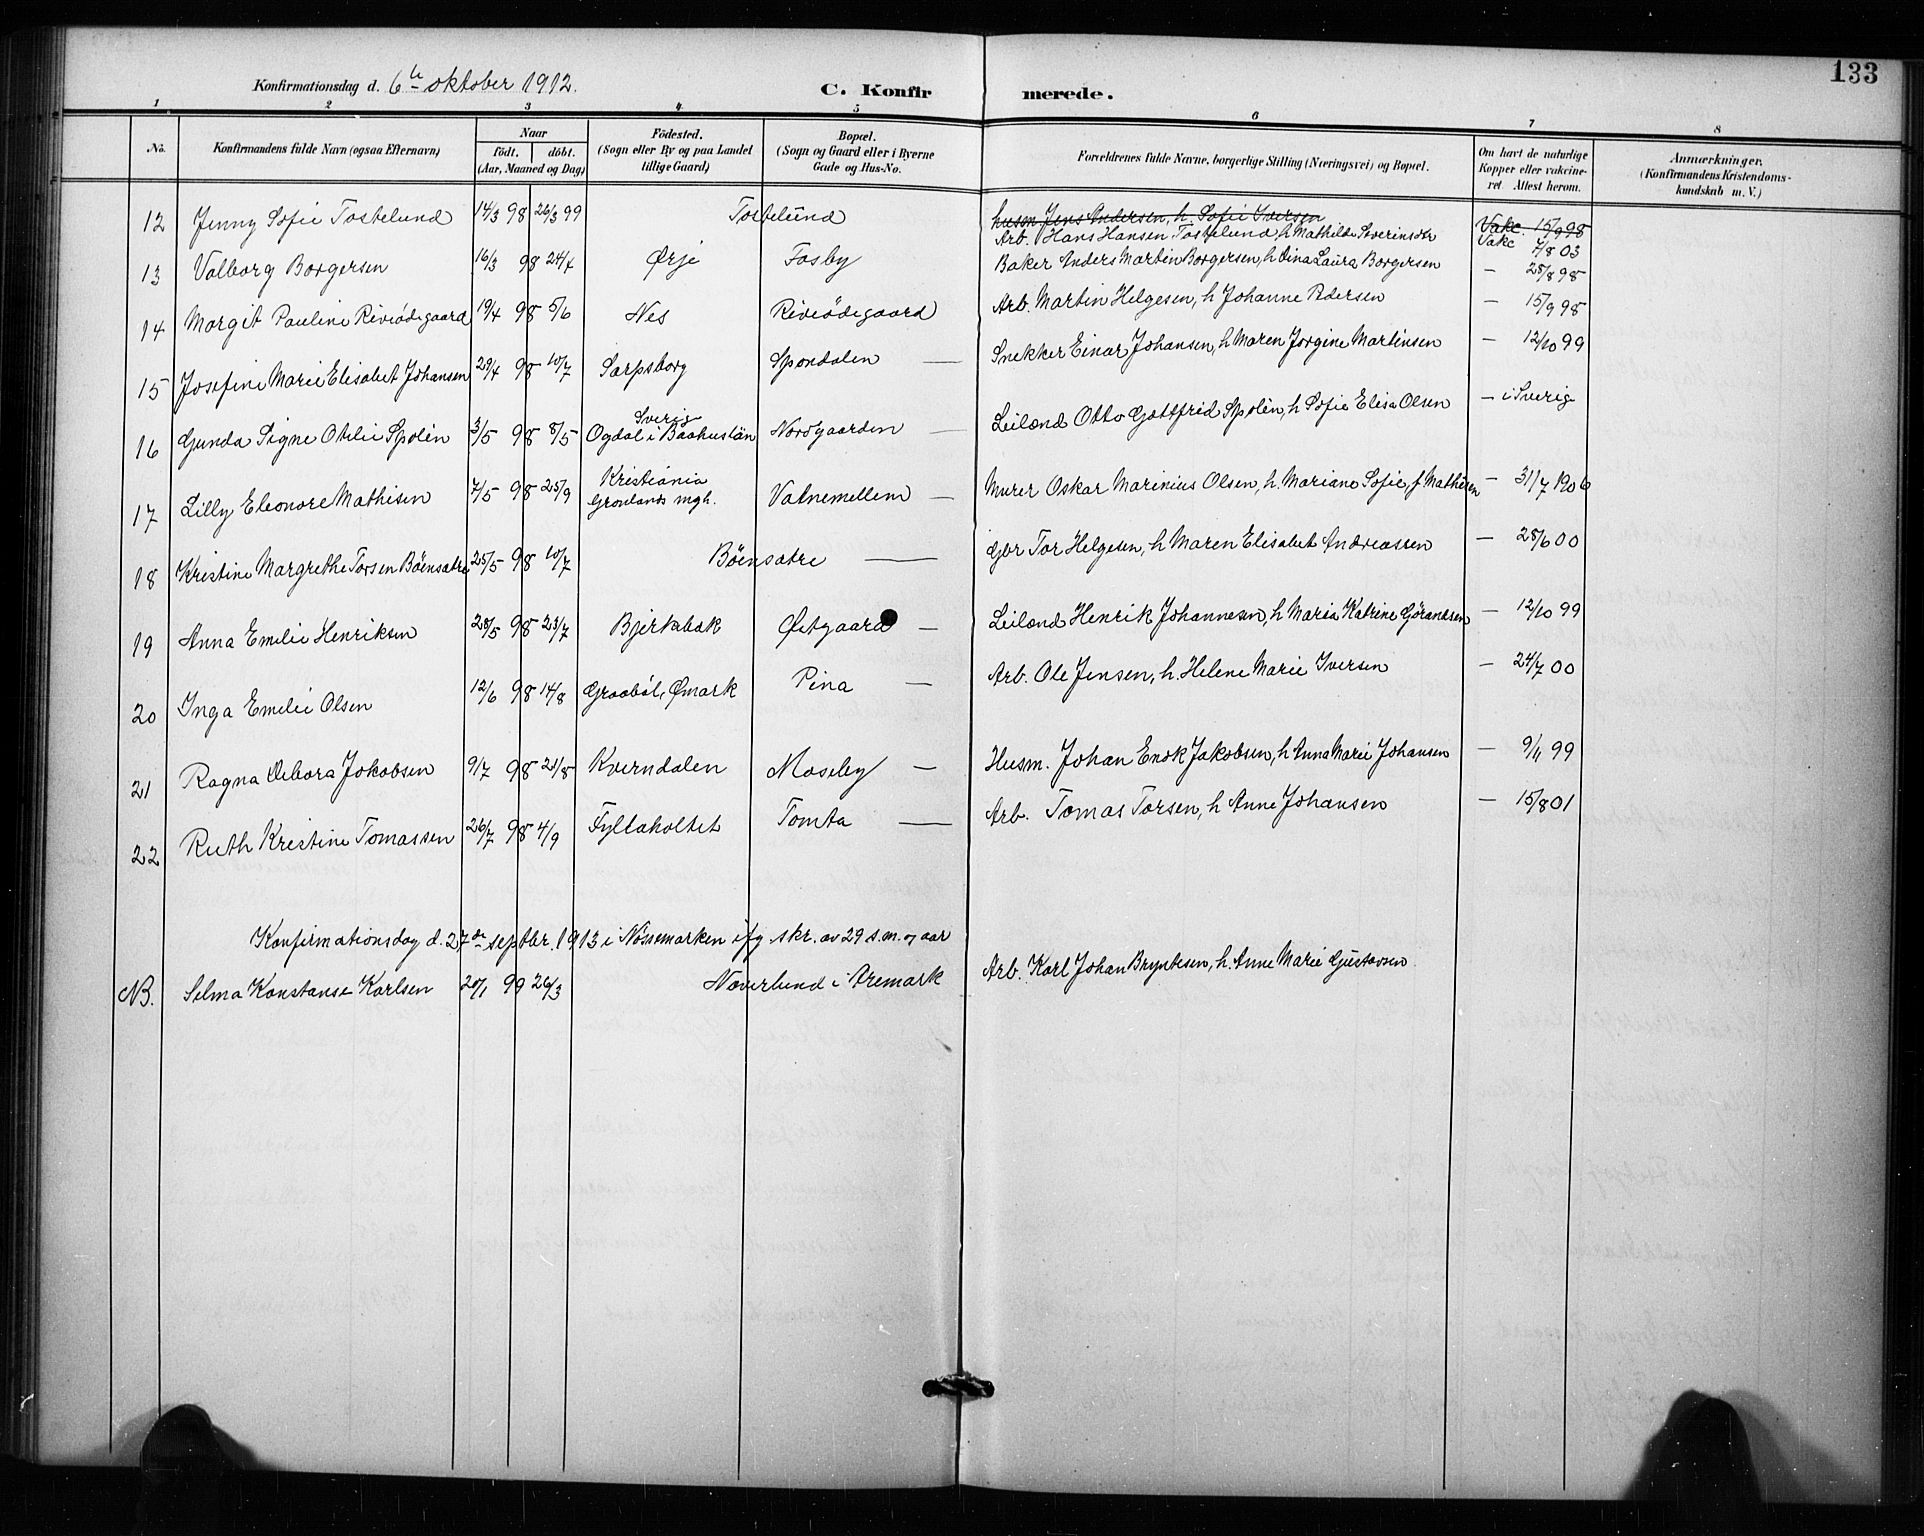 133
Konfirmationsdag d. 6te oktober 1912.
C. Konfirmerede.
1 2 3 4 5 6 7 8
No.
Konfirmandens fulde Navn (ogsaa Efternavn)
Naar
födt. döbt.
(Aar, Maaned og Dag)
Födested.
(Sogn eller By og paa Landet
tillige Gaard)
Bopæl.
(Sogn og Gaard eller i Byerne
Gade og Hus-No.
Forældrenes fulde Navne, borgerlige Stilling (Næringsvei) og Bopæl.
Om havt de naturlige
Kopper eller vakcine-
ret Attest herom.
Anmærkninger.
(Konfirmandens Kristendoms-
kundskab m. V.)
husm Jens Andersen, h. Sofie Iversen Vakc. 15/9 98
12 Jenny Sofie Tostelund 14/3 98 26/3 99 Tostelund Arb. Hans Hansen Tostelund, h Mathilde Severinsdtr Vakc 7/8 03
13 Valborg Borgersen 16/3 98 24/7 Ørje Fosby Baker Anders Martin Borgersen, h Dina Laura Borgersen — 25/8 98
14 Margit Pauline Riviødegaard 19/4 98 5/6 Nes Riviødegaard Arb. Martin Helgesen, h Johanne Pedersen — 15/9 98
15 Josefine Marie Elisabet Johansen 29/4 98 10/7 Sarpsborg Spondalen — Snekker Einar Johansen, h Maren Jorgine Martinsen — 12/10 99
16 Gunda Signe Otelie Spolén 3/5 98 8/5 Sverig Ogdal i Baahuslän Nordgaarden — Leilænd Otto Gottfrid Spolén, h Sofie Elisa Olsen — i Sverig
17 Lilly Eleonore Mathisen 7/5 98 25/9 Kristiania Grønlands mgh. Vatnemellem — Murer Oskar Marinius Olsen, h. Mariane Sofie, f Mathisen — 31/7 1906
18 Kristine Margrethe Torsen Bøensætre 25/5 98 10/7 Bøensætre — Gbr Tor Helgesen, h Maren Elisabet Andreassen — 28/6 00
19 Anna Emilie Henriksen 28/5 98 23/7 Bjerkebæk Østgaard — Leilænd Henrik Johannesen, h Maria Katrine Görandsen — 12/10 99
20 Inga Emilie Olsen 12/6 98 14/8 Graabøl, Ømark Pina — Arb. Ole Jensen, h. Helene Marie Iversen — 24/7 00
21 Ragna Debora Jakobsen 9/7 98 21/8 Kverndalen Moseby — Husm. Johan Enok Jakobsen, h Anna Marie Johansen — 9/11 99
22 Ruth Kristine Tomassen 26/7 98 4/9 Fyllaholtet Tomta — Arb. Tomas Torsen, h Anne Johansen — 15/8 01
Konfirmationsdag d. 27de septbr. 1913 i Nössemarken ifg skr. av 29 s.m. og aar
NB. Selma Konstanse Karlsen 20/1 99 26/3 Noverlund i Aremark Arb. Karl Johan Bryntesen, h. Anne Marie Gustavsen